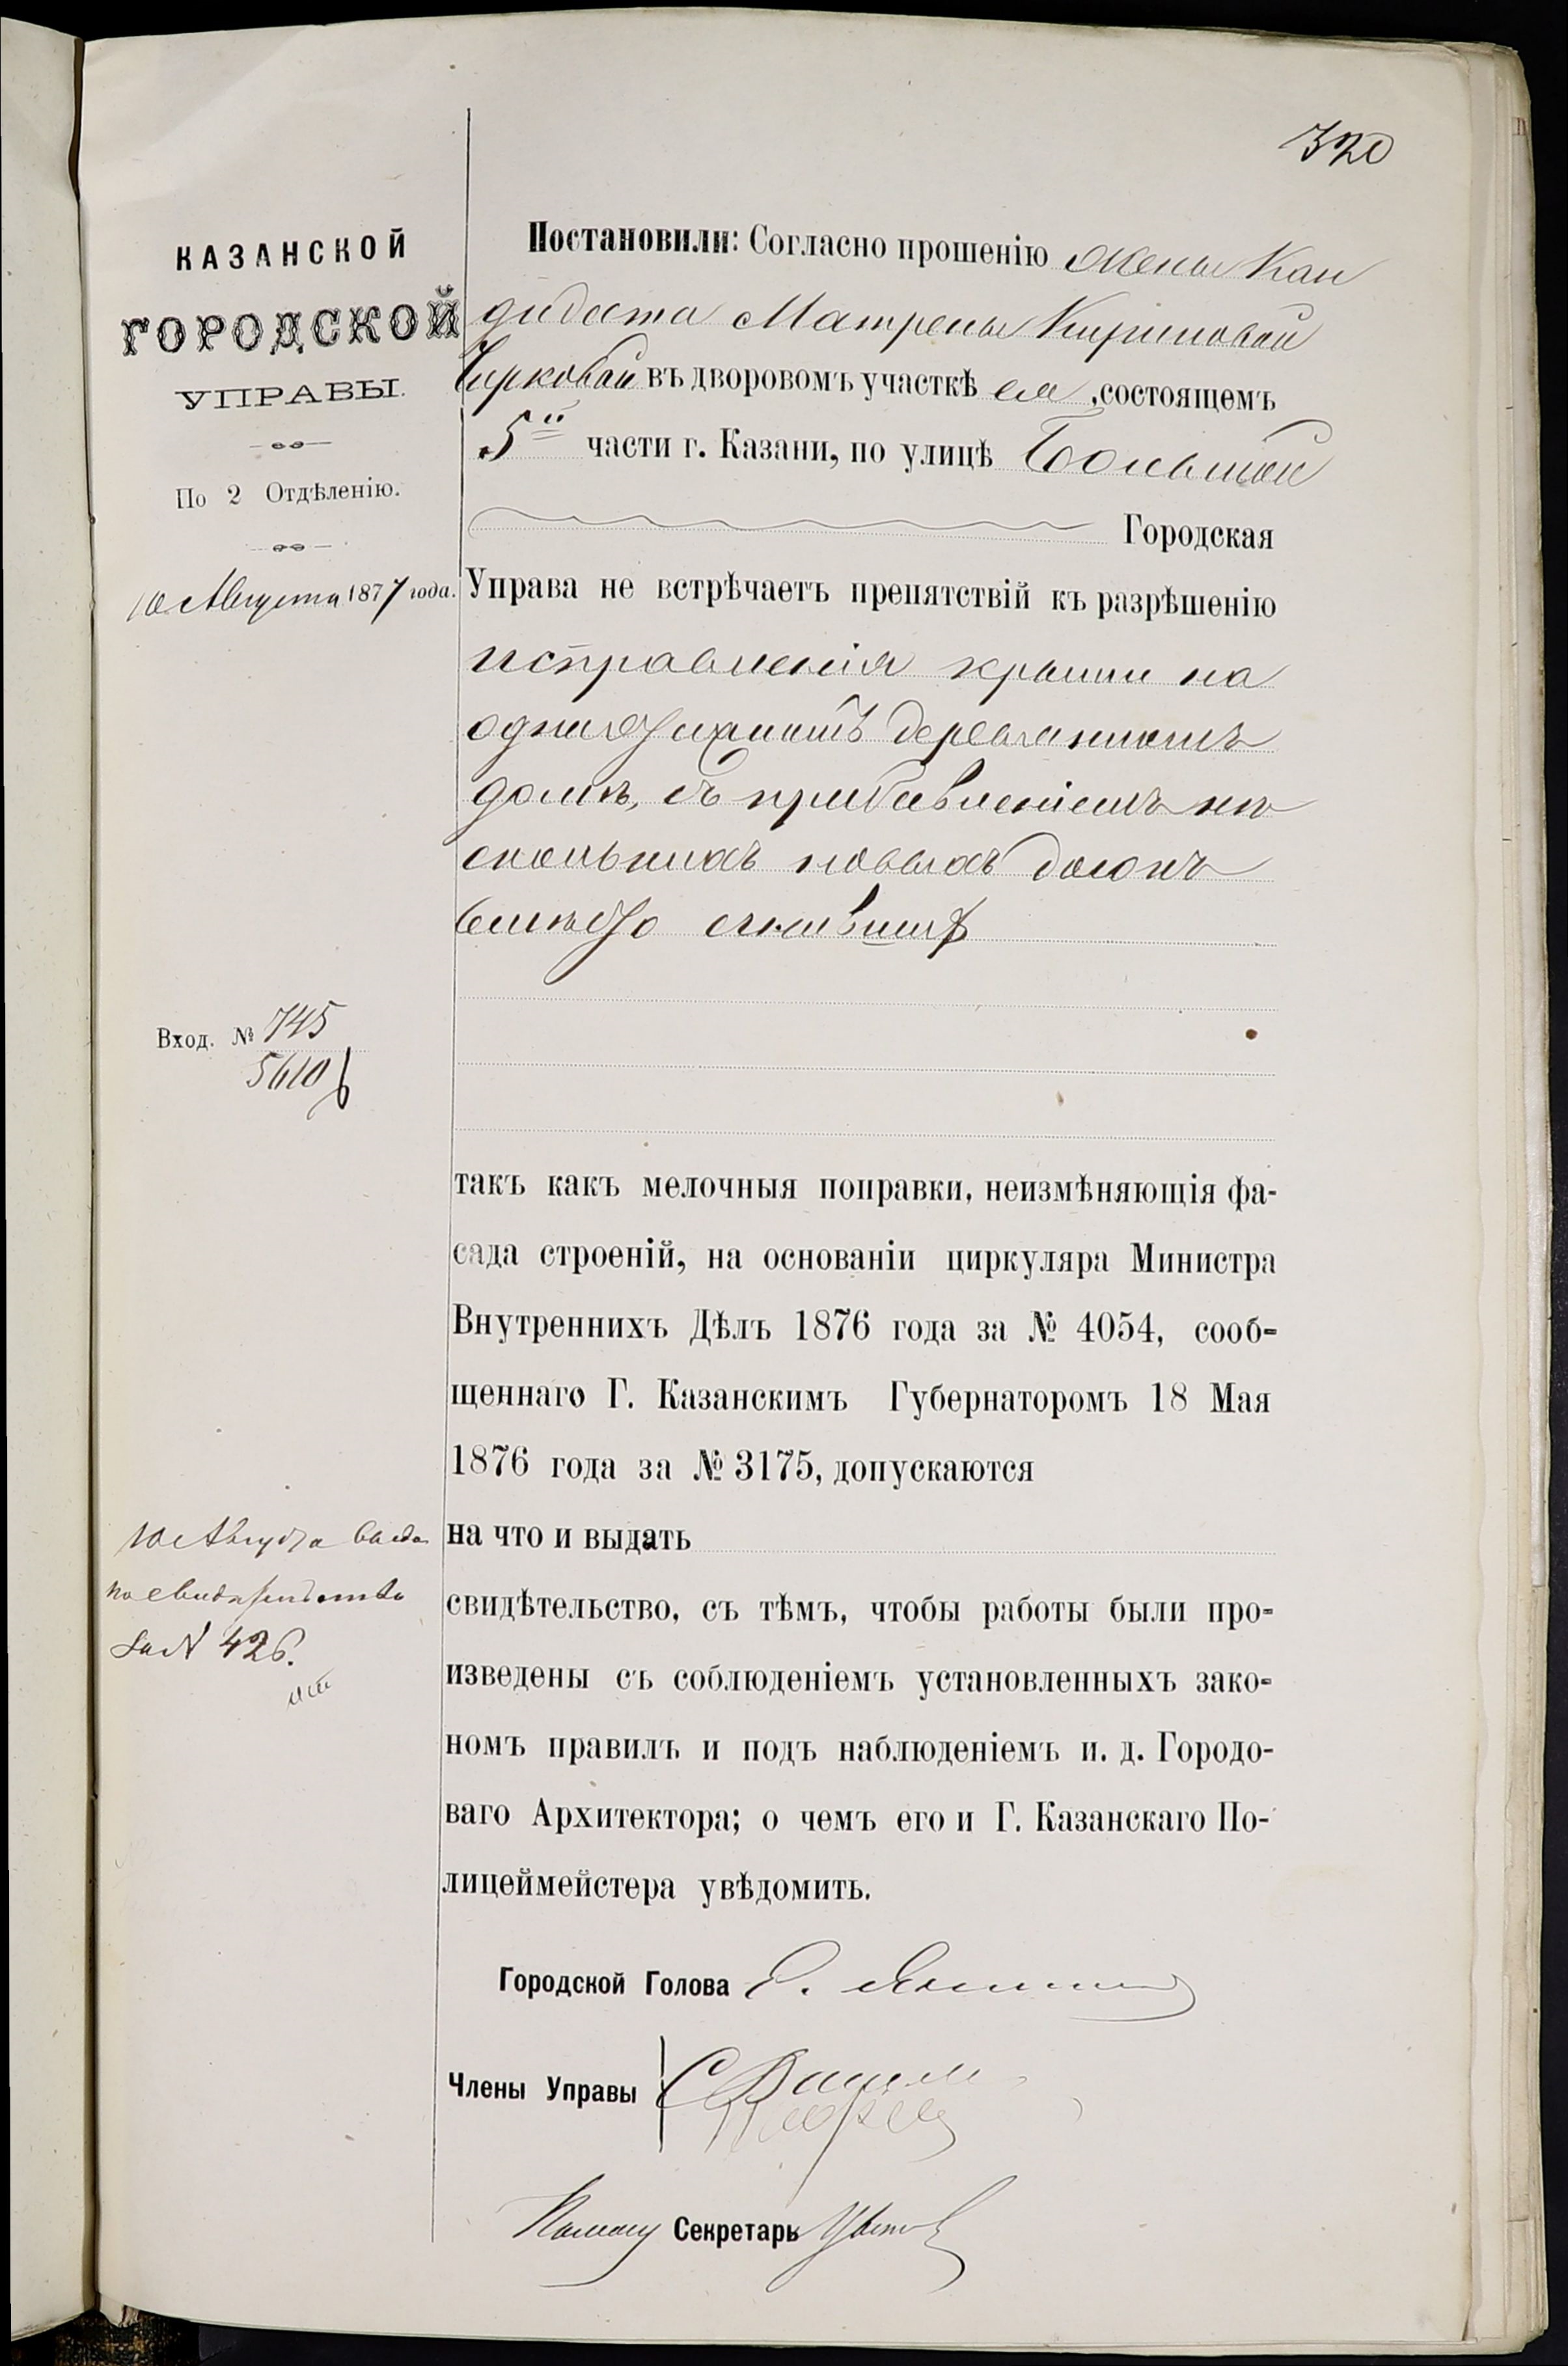 320
КАЗАНСКОЙ
ГОРОДСКОЙ
УПРАВЫ.
По 2 Отдѣленію.
10 Августа 1877 года.
Вход. № 745
5610
10 Августа выда
но свидѣтельство
за № 426.
Постановили: Согласно прошенію жены Кан
дидата Матрены Кириловой
Чирковой въ дворовомъ участкѣ ея, состоящемъ
5й части г. Казани, по улицѣ Большой
Городская
Управа не встрѣчаетъ препятствій къ разрѣшенію
исправленія крыши на
одноэтажномъ деревянномъ
домѣ, съ прибавленіемъ нѣ
сколькихъ новыхъ досокъ
вмѣсто сгнившихъ
такъ какъ мелочныя поправки, неизмѣняющія фа-
сада строеній, на основаніи циркуляра Министра
Внутреннихъ Дѣлъ 1876 года за № 4054, сооб-
щеннаго Г. Казанскимъ Губернаторомъ 18 Мая
1876 года за № 3175, допускаются
на что и выдать
свидѣтельство, съ тѣмъ, чтобы работы были про-
изведены съ соблюденіемъ установленныхъ зако-
номъ правилъ и подъ наблюденіемъ и. д. Городо-
ваго Архитектора; о чемъ его и Г. Казанскаго По-
лицеймейстера увѣдомить.
Городской Голова
Члены Управы
Секретарь